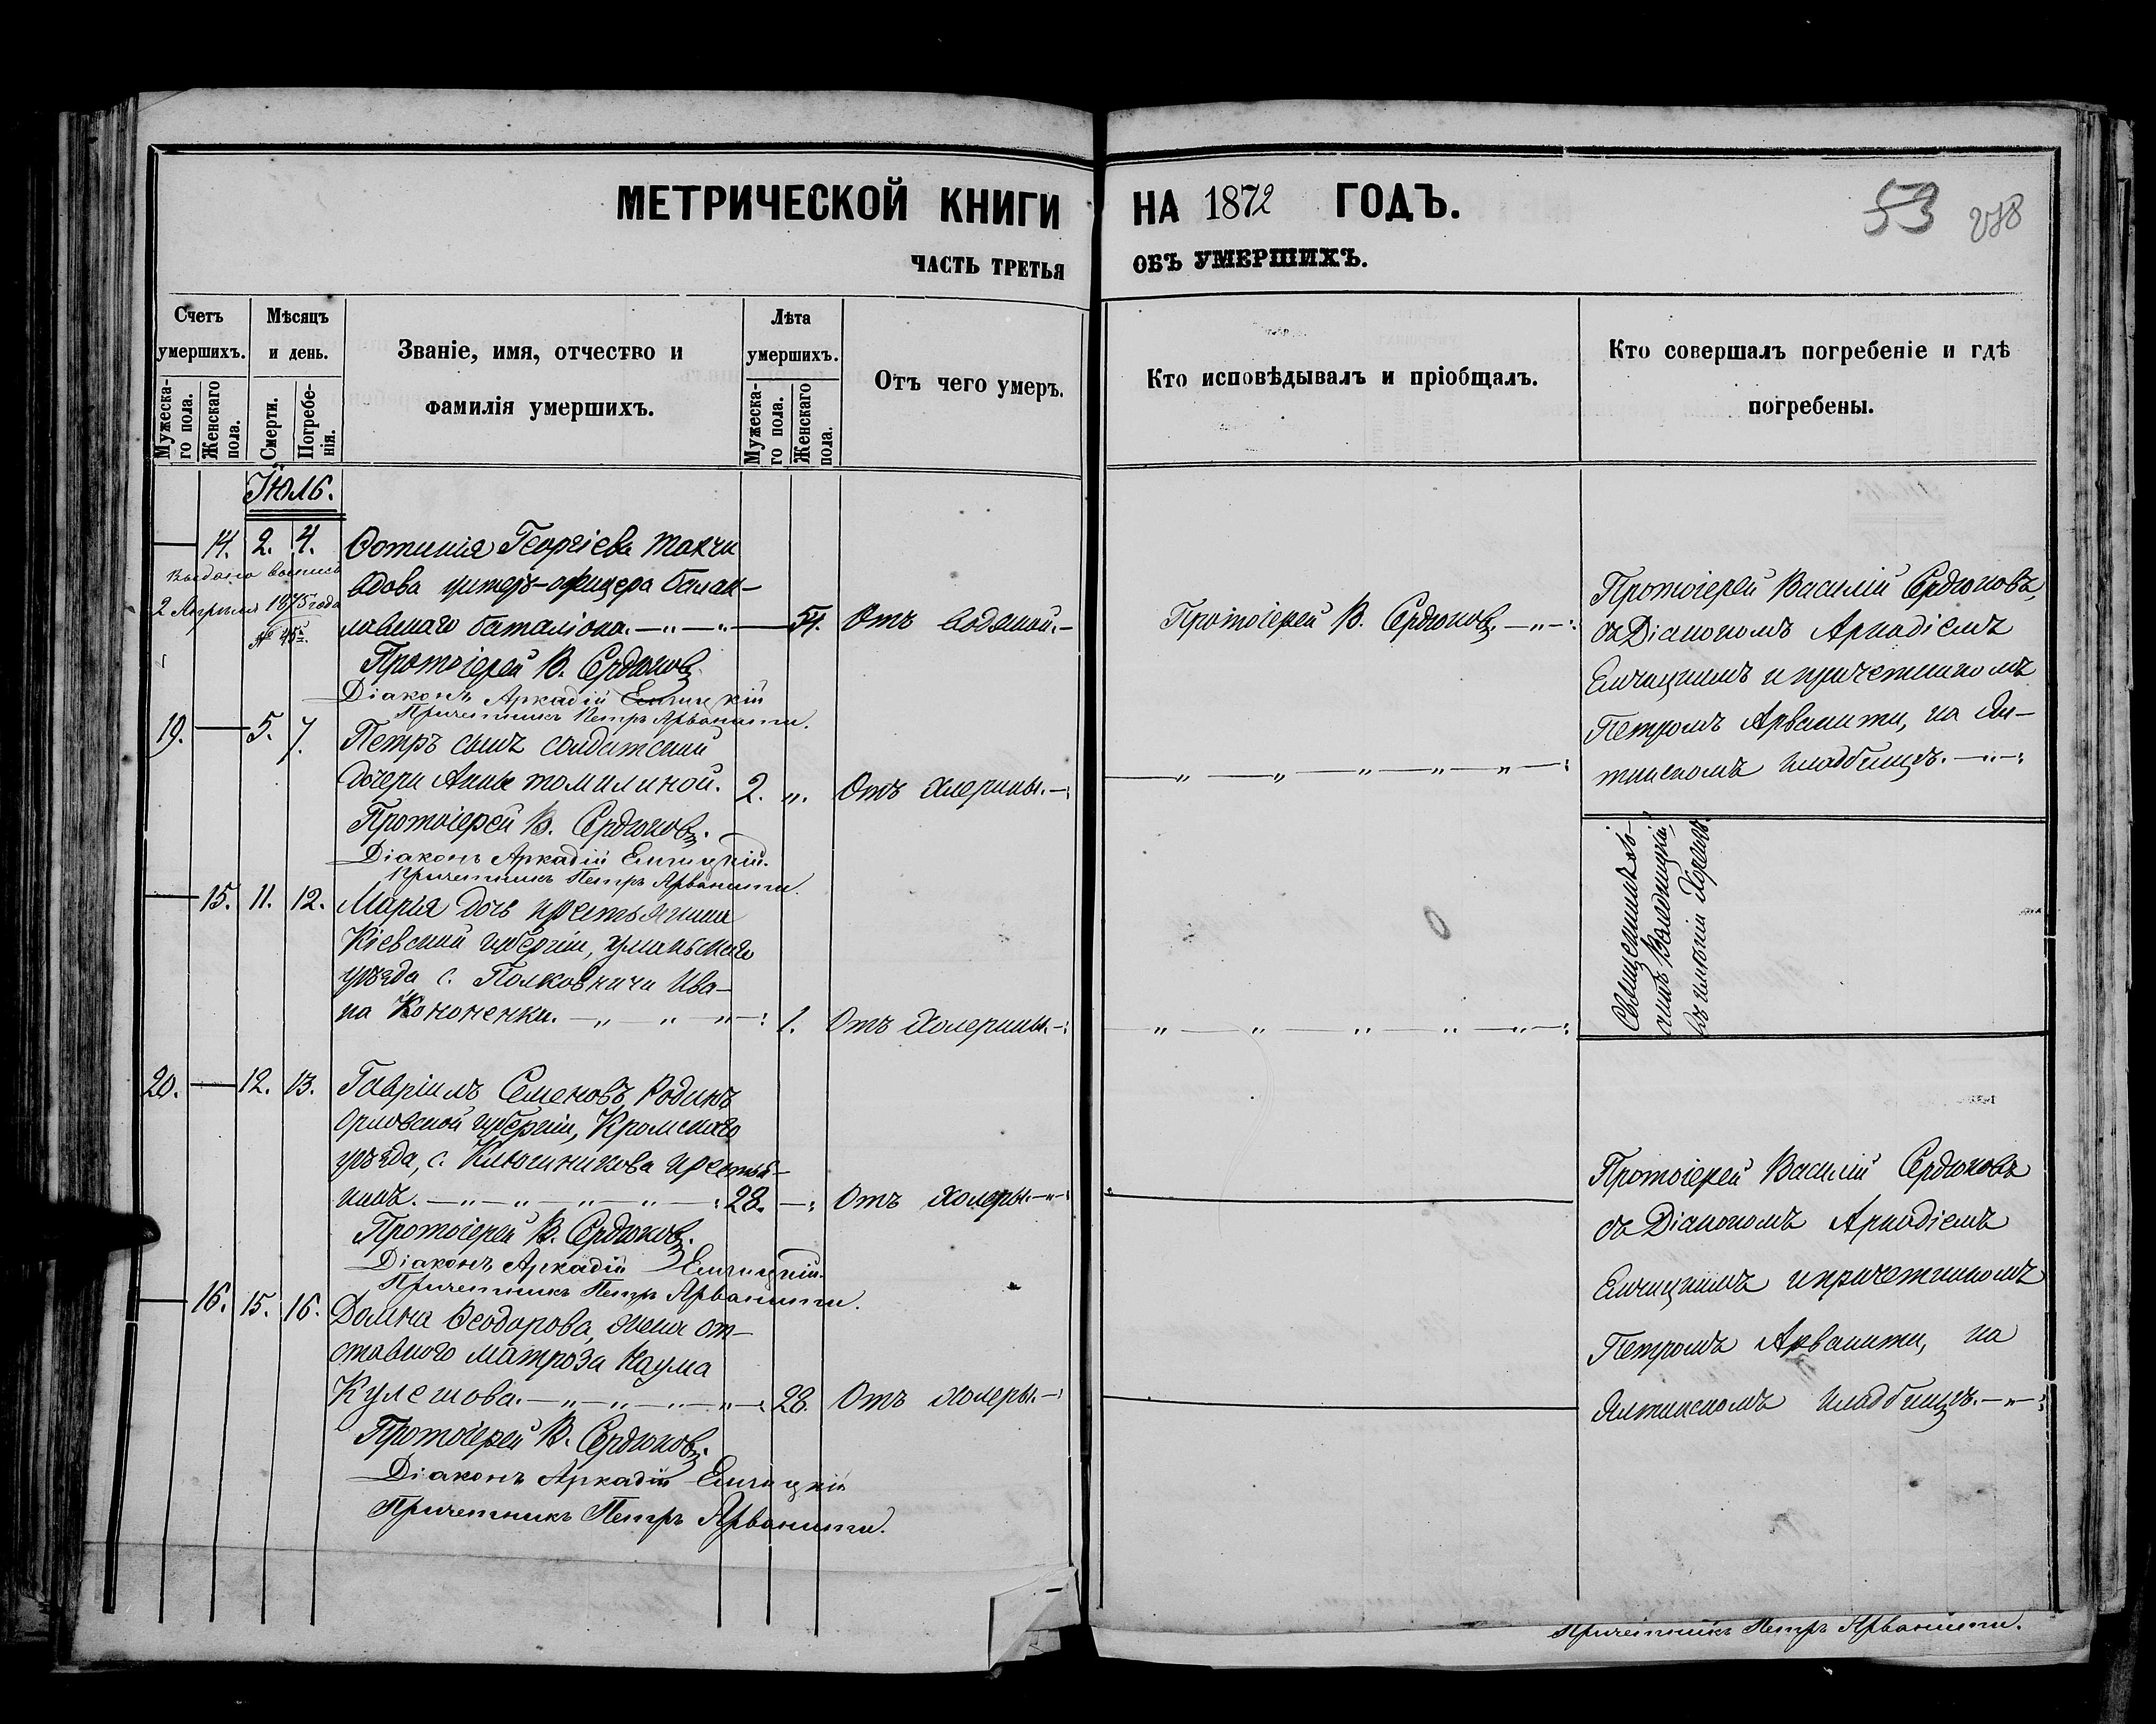 МЕТРИЧЕСКОЙ КНИГИ НА 1872 ГОДЪ.
53 218
ЧАСТЬ ТРЕТЬЯ ОБЪ УМЕРШИХЪ.
Счетъ умершихъ.
Мужеска-го пола.
Женскаго пола.
Мѣсяцъ и день.
Смерти.
Погребе-нія.
Званіе, имя, отчество и
фамилія умершихъ.
Лѣта умершихъ.
Мужеска-го пола.
Женскаго пола.
Отъ чего умеръ.
Кто исповѣдывалъ и пріобщалъ.
Кто совершалъ погребеніе и гдѣ
погребены.
Іюль.
14. 2. 4. Фотинія Георгіева Такчи
вдова унтеръ-офицера балак-
лавскаго баталіона. 54. Отъ водяной.
Выдана выпись
2 Апрѣля 1875 года
№ 45.
Протоіерей В. Сердюковъ
Діаконъ Аркадій Ельчицкій
Причетникъ Петръ Арванити.
Протоіерей В. Сердюковъ
Протоіерей Василій Сердюковъ,
съ Діакономъ Аркадіемъ
Ельчицкимъ и причетникомъ
Петромъ Арванити, на Ял-
тинскомъ кладбищѣ.
19. 5. 7. Петръ сынъ солдатской
дочери Анны Томилиной. 2. „ Отъ холерины.
Протоіерей В. Сердюковъ.
Діаконъ Аркадій Ельчицкій.
Причетникъ Петръ Арванити.
15. 11. 12. Марія дочь крестьянина
Кіевской губерніи, уманьскаго
уѣзда с. Полковничи Ива-
на Кононенки. 1. Отъ холерины.
въ имѣніи
20. 12. 13. Гавріилъ Семеновъ Родинъ
Орловской губерніи, Кромскаго
уѣзда, с. Ключникова крестья-
нинъ. 28. Отъ холеры.
Протоіерей В. Сердюковъ.
Діаконъ Аркадій Ельчицкій.
Причетникъ Петръ Арванити.
Протоіерей Василій Сердюковъ
съ Діакономъ Аркадіемъ
Ельчицкимъ и причетникомъ
Петромъ Арванити, на
Ялтинскомъ кладбищѣ.
16. 15. 16. Домна Ѳеодорова, жена от-
ставного матроза Наума
Кулешова. 28. Отъ холеры.
Протоіерей В. Сердюковъ.
Діаконъ Аркадій Ельчицкій
Причетникъ Петръ Арванити.
Причетникъ Петръ Арванити.